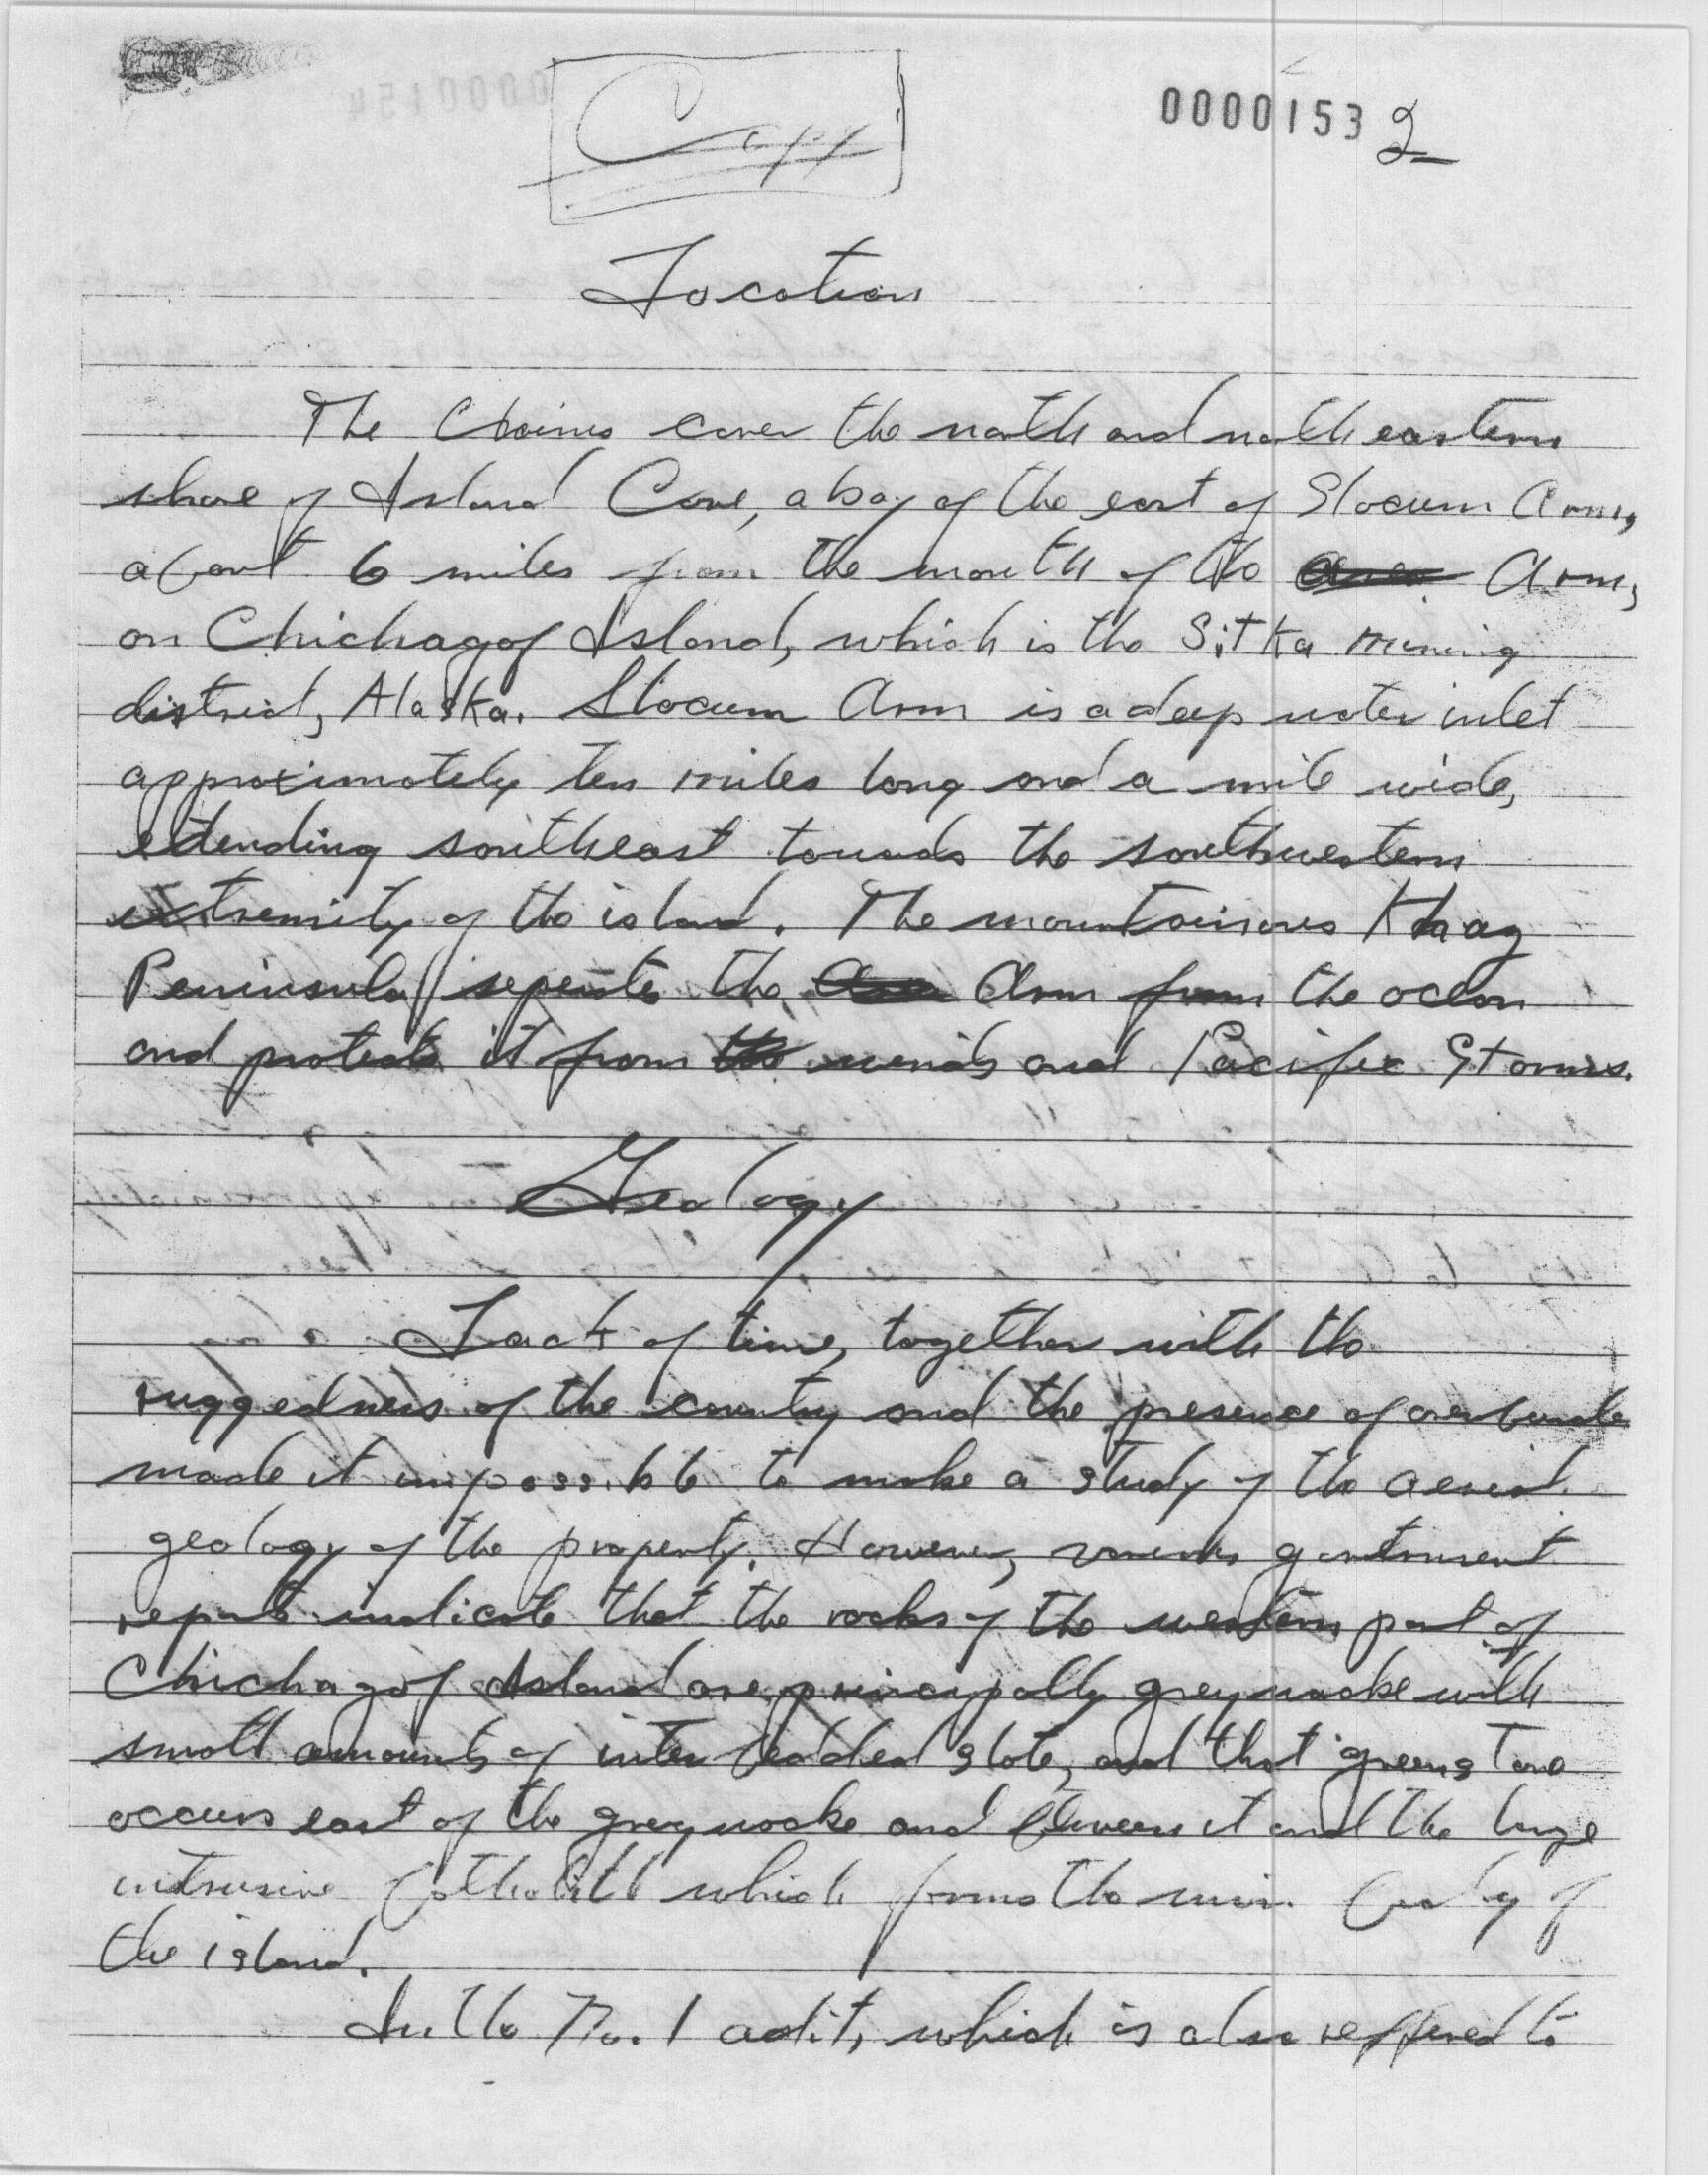 Copy
0000153 2
Location
The Claims cover the north and northeastern
shore of Island Cove, a bay of the east of Slocum Arm,
about 6 miles from the mouth of the Arm,
on Chichagof Island, which is the Sitka mining
district, Alaska. Slocum Arm is a deep water inlet
approximately ten miles long and a mile wide,
extending southeast towards the southwestern
extremity of the island. The mountainous Khaz
Peninsula seperates the Arm from the ocean
and protects it from winds and Pacific Storms.
Geology
Lack of time, together with the
ruggedness of the country and the presence of overburden
made it impossible to make a study of the aerial
geology of the property. However, various government
reports indicate that the rocks of the western part of
Chichagof Island are principally greywacke with
small amounts of interbedded slate, and that greenstone
occurs east of the greywacke and between it and the huge
intrusive batholith which forms the main body of
the island.
In the No. 1 adit, which is also reffered to